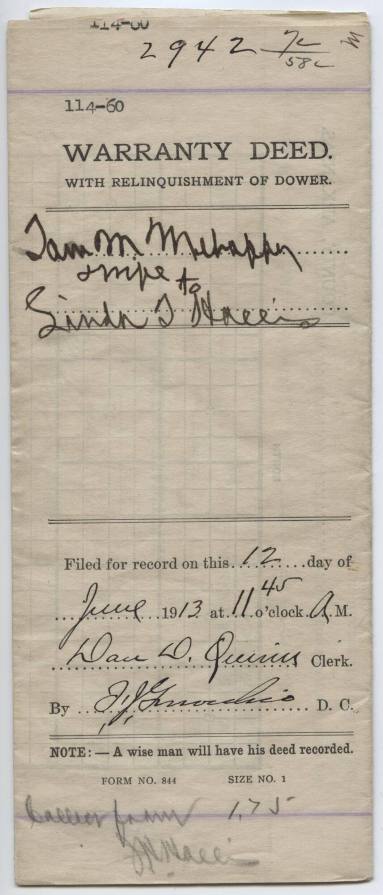 114-60
2942 7c/58c
M
114-60
WARRANTY DEED.
WITH RELINQUISHMENT OF DOWER.
Sam M.
& wife to
Linda T Harris
Filed for record on this 12 day of
June 1913 at 11 45 o'clock A M.
Dan D. Quinn Clerk.
By D. C.
NOTE: — A wise man will have his deed recorded.
FORM NO. 844 SIZE NO. 1
from 1,75